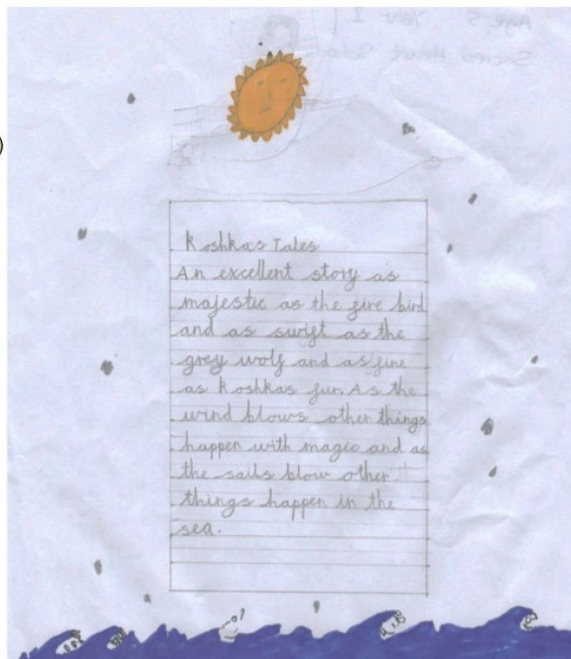 Age 5 Year 1
Sacred Heart School
Koshka's Tales
An excellent story as
majestic as the fire bird
and as swift as the
grey wolf and as fine
as Koshkas fur. As the
wind blows other things
happen with magic and as
the sails blow other
things happen in the
sea.